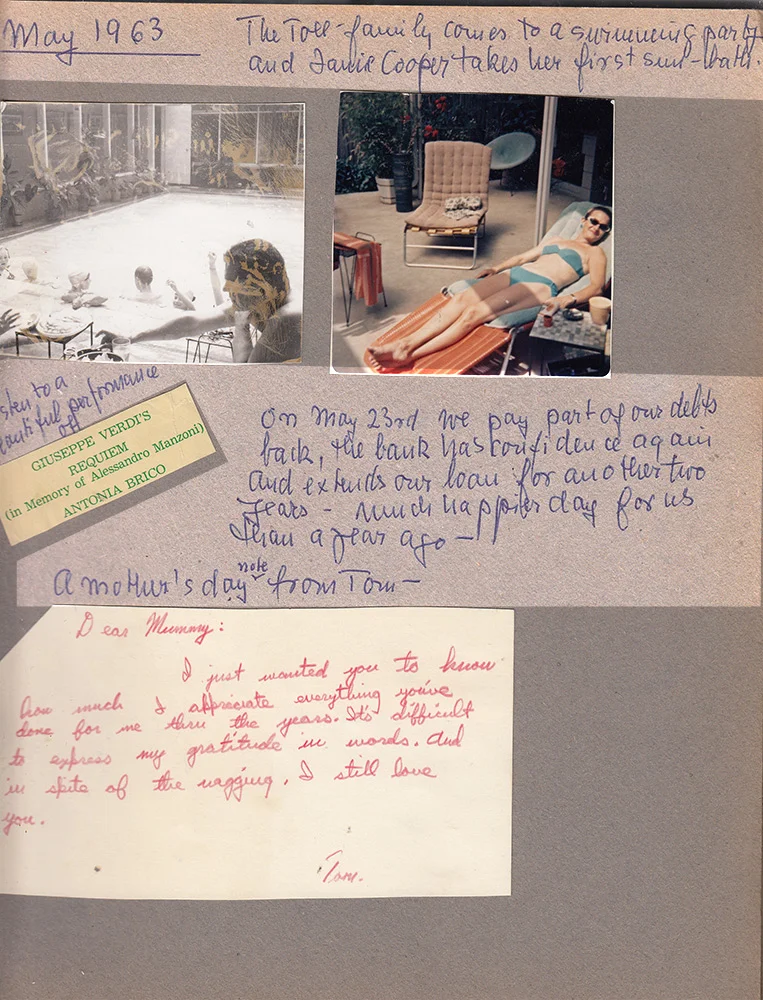 May 1963
The Toll-family comes to a swimming party
and Janie Cooper takes her first sun-bath.
listen to a
beautiful performance
off
GIUSEPPE VERDI'S
REQUIEM
(in Memory of Alessandro Manzoni)
ANTONIA BRICO
On May 23rd we pay part of our debts
back, the bank has confidence again
and extends our loan for another two
years - much happier day for us
than a year ago -
A mother's day note from Tom -
Dear Mummy:
I just wanted you to know
how much I appreciate everything you've
done for me thru the years. It's difficult
to express my gratitude in words. And
in spite of the nagging, I still love
you.
Tom.